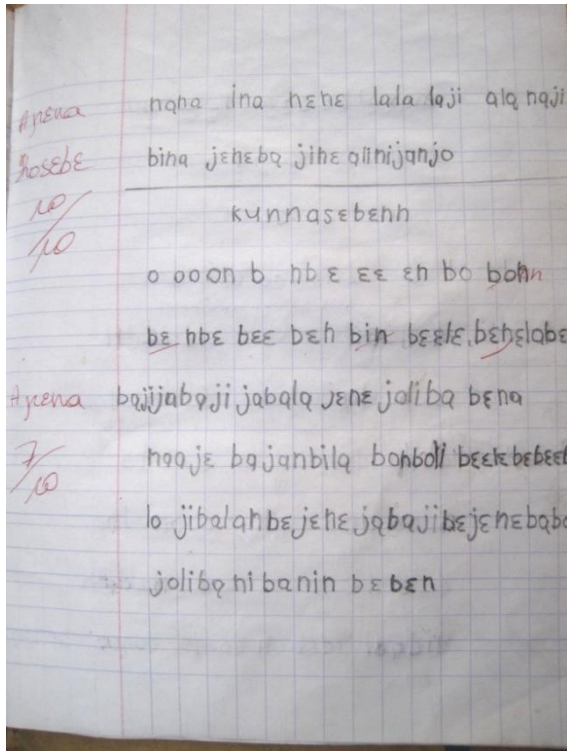 nana ina nɛnɛ lala laji ala naji
Aɲɛna
bina jɛnɛba jinɛ alinijanjo
hosɛbɛ
10/10
kunnasɛbɛnn
o oo on b nb ɛ ɛɛ ɛn bo bonn
bɛ nbɛ bɛɛ bɛn bin bɛɛlɛ.bɛnɛlabɛ
Aɲɛna
bajijabaji jabala jɛnɛ joliba bɛna
7/10
naajɛ bajanbila bonboli bɛɛlɛbɛbɛɛl
lo jibalanbɛjɛnɛ jabajibɛjɛnɛbabo
joliba ni banin bɛbɛn